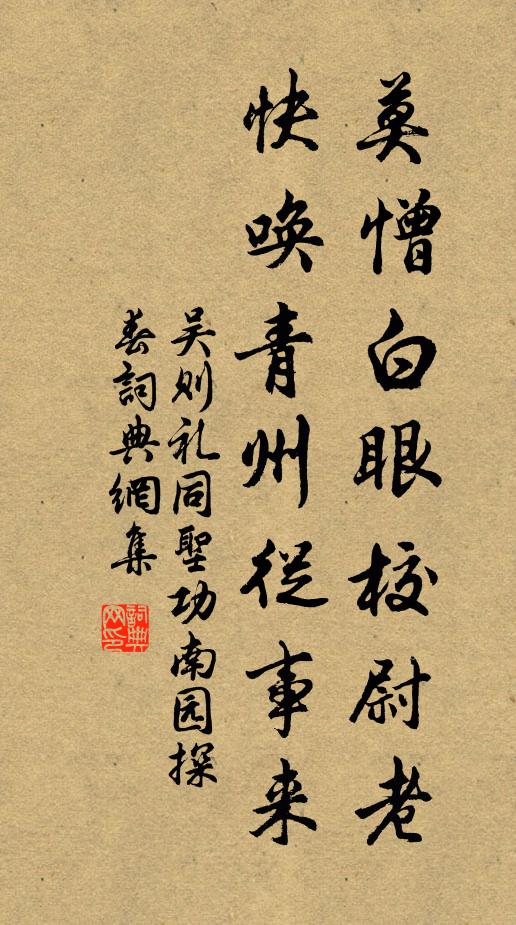 莫憎白眼校尉老
快唤青州從事来
吴则礼同聖功南园探
春詞典網集
詞典网印